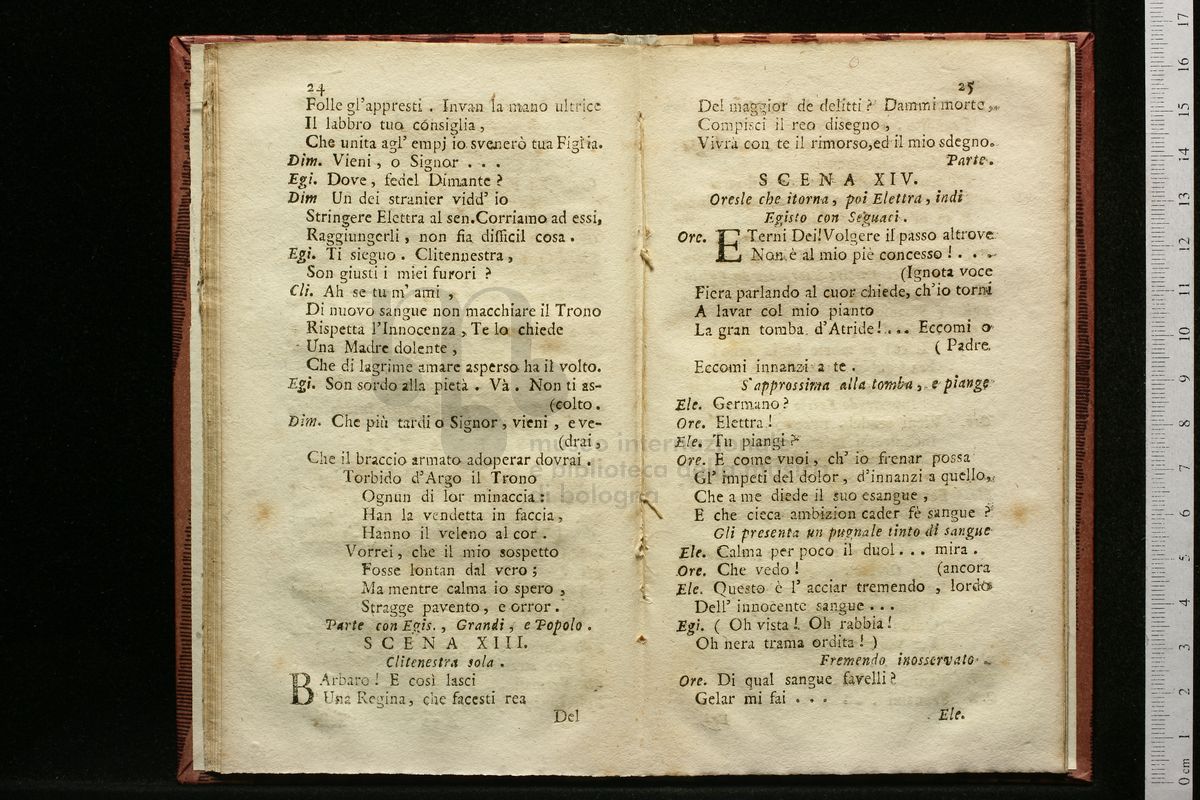 24
Folle gl'appresti . Invan la mano ultrice
Il labbro tuo consiglia ,
Che unita agl' empj io svenerò tua Figlia.
Dim. Vieni , o Signor . . .
Egi. Dove , fedel Dimante ?
Dim Un dei stranier vidd' io
Stringere Elettra al sen.Corriamo ad essi,
Raggiungerli , non fia difficil cosa .
Egi. Ti sieguo . Clitennestra ,
Son giusti i miei furori ?
Cli. Ah se tu m' ami ,
Di nuovo sangue non macchiare il Trono
Rispetta l'Innocenza , Te lo chiede
Una Madre dolente ,
Che di lagrime amare asperso ha il volto.
Egi. Son sordo alla pietà . Và . Non ti as-
(colto .
Dim. Che più tardi o Signor , vieni , e ve-
(drai ,
Che il braccio armato adoperar dovrai .
Torbido d'Argo il Trono
Ognun di lor minaccia :
Han la vendetta in faccia ,
Hanno il veleno al cor .
Vorrei , che il mio sospetto
Fosse lontan dal vero ;
Ma mentre calma io spero ,
Stragge pavento , e orror .
Parte con Egis. , Grandi , e Popolo .
SCENA XIII.
Clitenestra sola .
BArbaro ! E così lasci
Una Regina , che facesti rea
Del
25
Del maggior de delitti ? Dammi morte ,
Compisci il reo disegno ,
Vivrà con te il rimorso,ed il mio sdegno.
Parte .
SCENA XIV.
Oresle che itorna , poi Elettra , indi
Egisto con Seguaci .
Ore. ETerni Dei!Volgere il passo altrove
Non è al mio piè concesso ! . . .
(Ignota voce
Fiera parlando al cuor chiede, ch'io torni
A lavar col mio pianto
La gran tomba d'Atride!... Eccomi o
( Padre.
Eccomi innanzi a te .
S'approssima alla tomba , e piange
Ele. Germano ?
Ore. Elettra !
Ele. Tu piangi ?
Ore. E come vuoi , ch' io frenar possa
Gl' impeti del dolor , d'innanzi a quello,
Che a me diede il suo esangue ,
E che cieca ambizion cader fè sangue ?
Gli presenta un pugnale tinto di sangue
Ele. Calma per poco il duol . . . mira .
Ore. Che vedo ! (ancora
Ele. Questo è l' acciar tremendo , lordo
Dell' innocente sangue . . .
Egi. ( Oh vista ! Oh rabbia !
Oh nera trama ordita ! )
Fremendo inosservato .
Ore. Di qual sangue favelli ?
Gelar mi fai . . .
Ele.